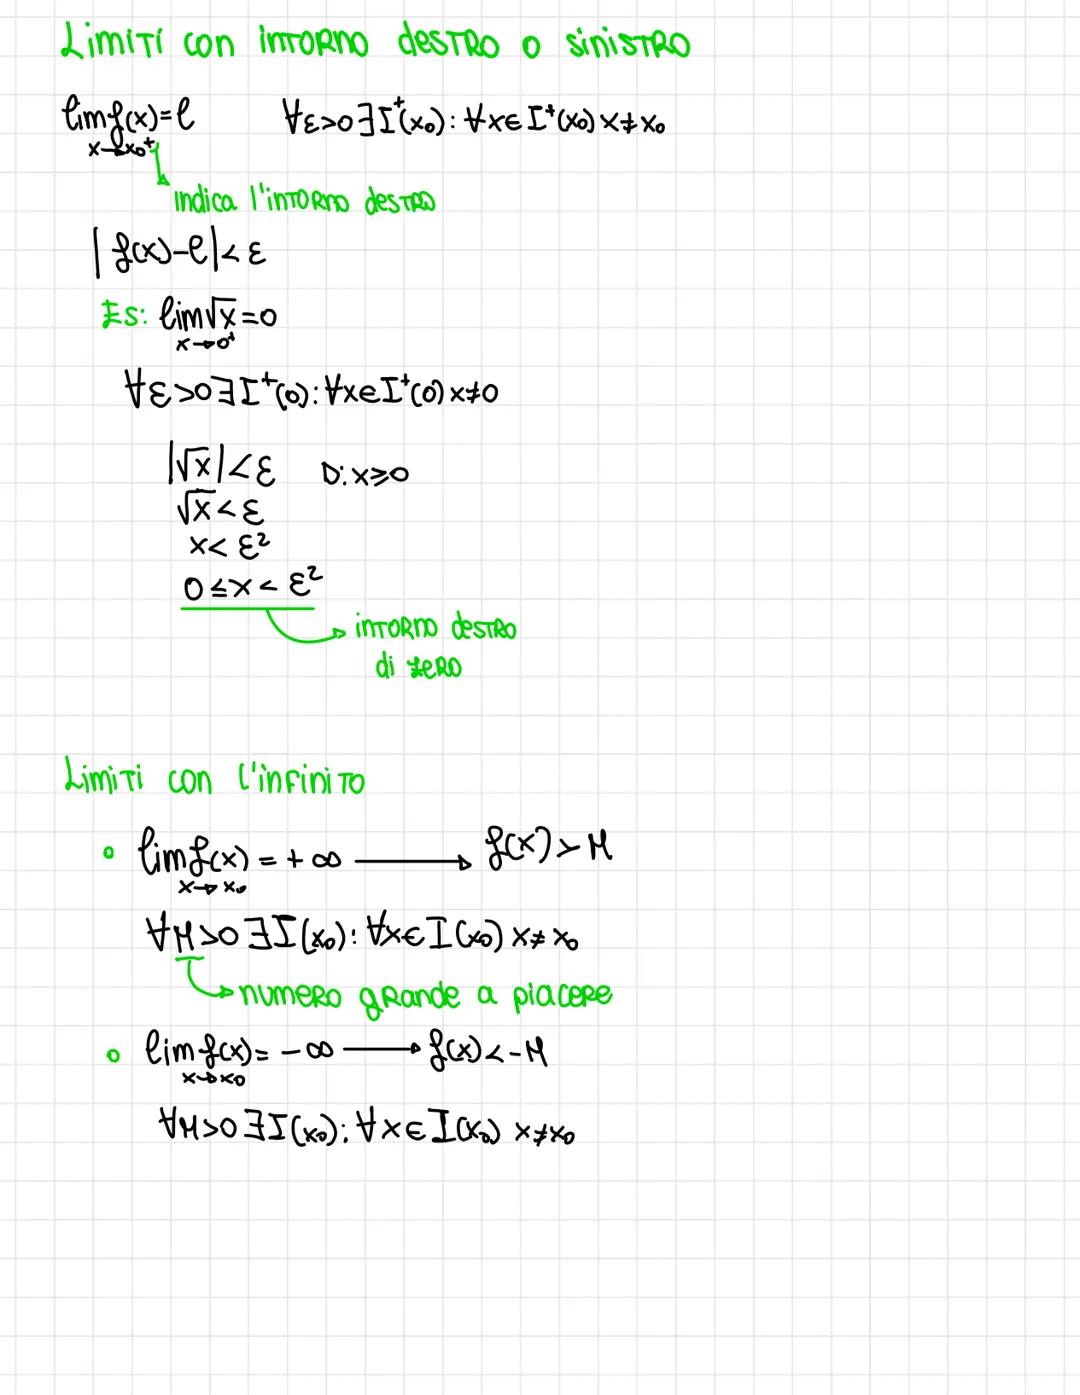 Limiti con intorno destro o sinistro
lim f(x)=l ∀ε>0 ∃ I⁺(x₀): ∀x∈I⁺(x₀) x≠x₀
x→x₀⁺
indica l'intorno destro
|f(x)-l|<ε
Es: lim √x=0
x→0⁺
∀ε>0 ∃ I⁺(0): ∀x∈I⁺(0) x≠0
|√x|<ε D: x⩾0
√x<ε
x<ε²
0≤x<ε²
intorno destro
di zero
Limiti con l'infinito
lim f(x)=+∞ → f(x)>M
x→x₀
∀M>0 ∃ I(x₀): ∀x∈I(x₀) x≠x₀
numero grande a piacere
lim f(x)=-∞ → f(x)<-M
x→x₀
∀M>0 ∃ I(x₀): ∀x∈I(x₀) x≠x₀